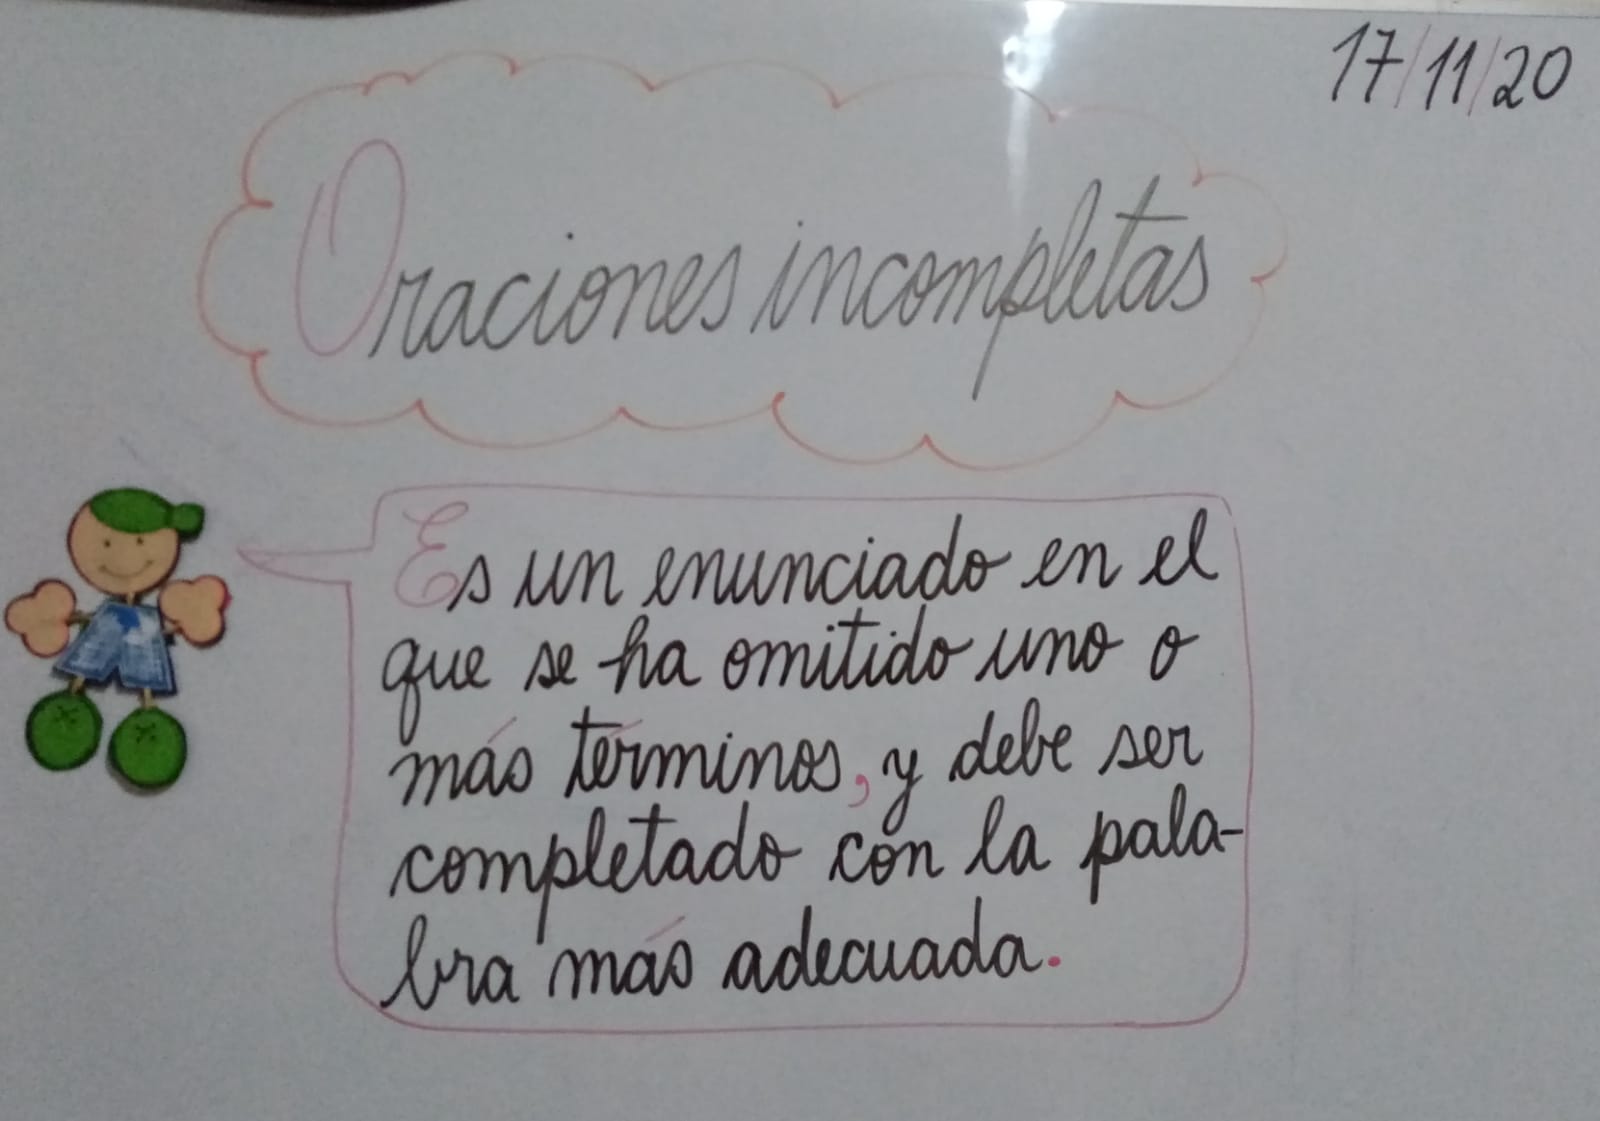 17/11/20
Oraciones incompletas
Es un enunciado en el
que se ha omitido uno o
más términos, y debe ser
completado con la pala-
bra más adecuada.